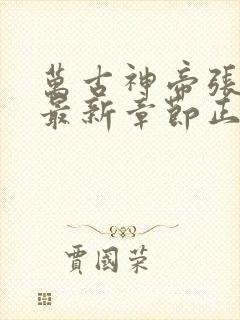 萬古神帝張
最新章節正
賈國荣